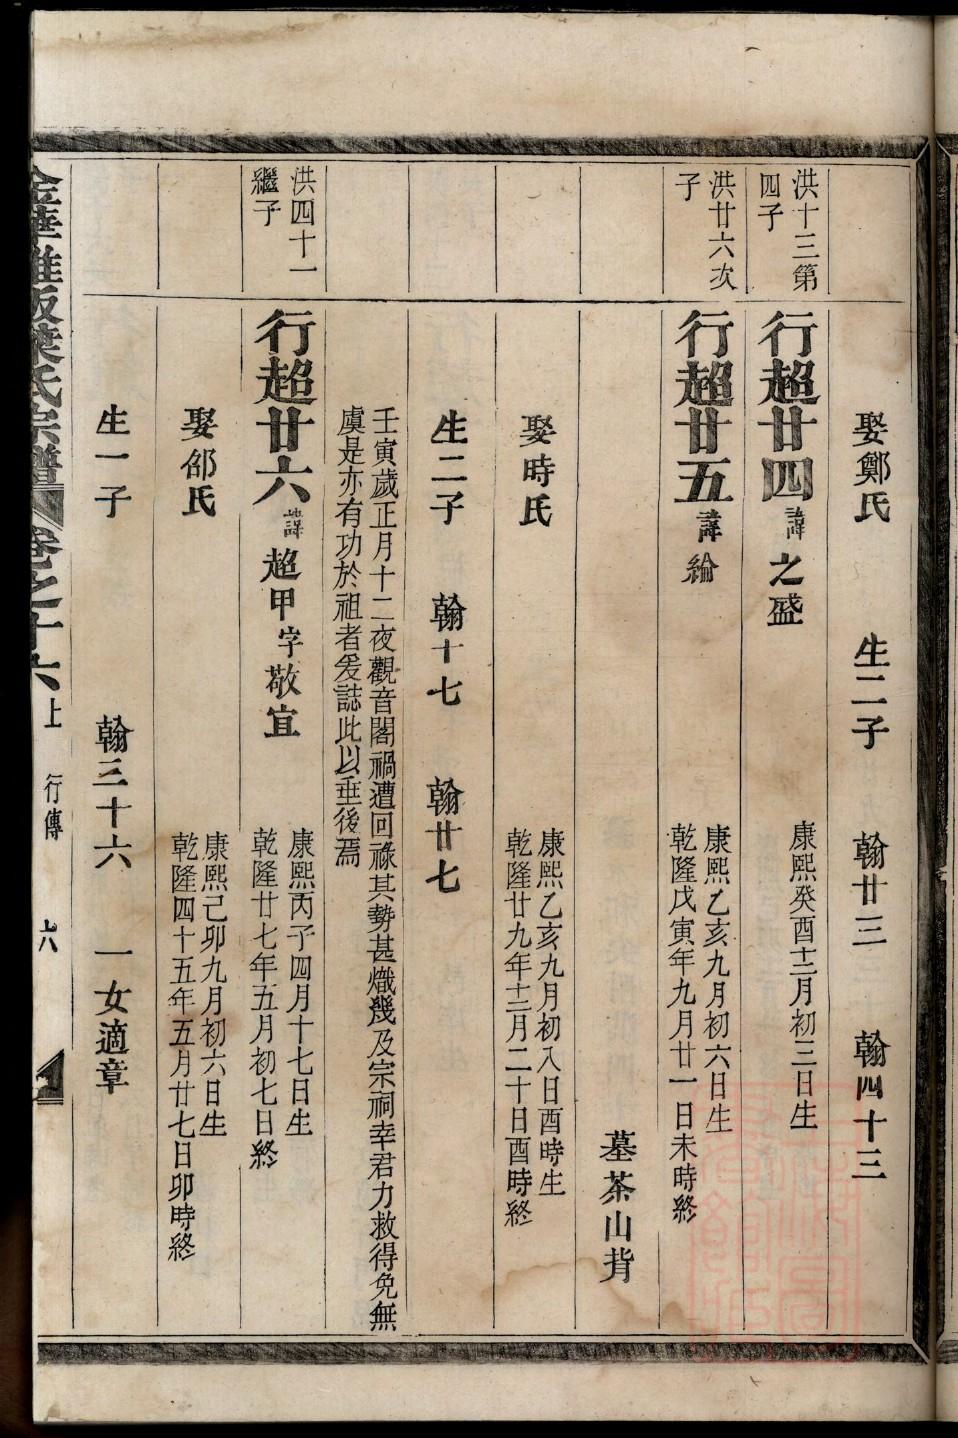 娶鄭氏 生二子 翰廿三 翰四十三
洪十三第
四子
行超廿四 諱之盛 康熙癸酉十二月初三日生
洪廿六次
子
行超廿五 諱綸 康熙乙亥九月初六日生
乾隆戊寅年九月廿一日未時終
墓茶山背
娶時氏 康熙乙亥九月初入日酉時生
乾隆廿九年十二月二十日酉時終
生二子 翰十七 翰廿七
壬寅歲正月十二夜觀音閣禍遭回祿其勢甚熾幾及宗祠幸君力救得免無
虞是亦有功於祖者爰誌此以垂後焉
洪四十一
繼子
行超廿六 諱超甲字敬宜 康熙丙子四月十七日生
乾隆廿七年五月初七日終
娶邰氏 康熙己卯九月初六日生
乾隆四十五年五月廿七日卯時終
生一子 翰三十六 一女適章
金華雅畈葉氏宗譜 卷之十六上 行傳 六